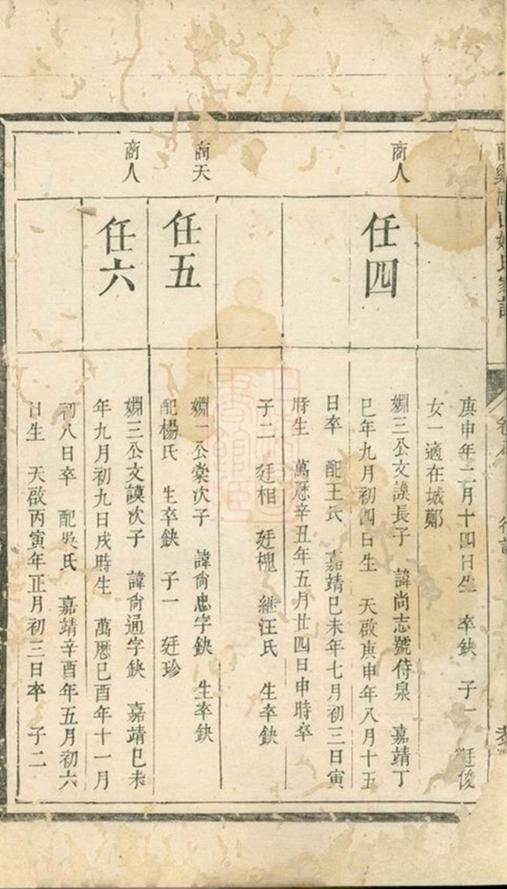 庚申年二月十四日生 卒缺 子一 廷俊
女一適在城鄭
商人
任四
嫻三公文謨長子 諱尚志號侍泉 嘉靖丁
巳年九月初四日生 天啟庚申年八月十五
日卒 配王氏 嘉靖己未年七月初三日寅
時生 萬曆辛丑年五月廿四日申時卒
子二 廷相 廷槐 繼汪氏 生卒缺
商天
任五
嫻一公棠次子 諱尚忠字缺 生卒缺
配楊氏 生卒缺 子一 廷珍
商人
任六
嫻三公文謨次子 諱尚通字缺 嘉靖己未
年九月初九日戌時生 萬曆己酉年十一月
初八日卒 配吳氏 嘉靖辛酉年五月初六
日生 天啟丙寅年正月初三日卒 子二